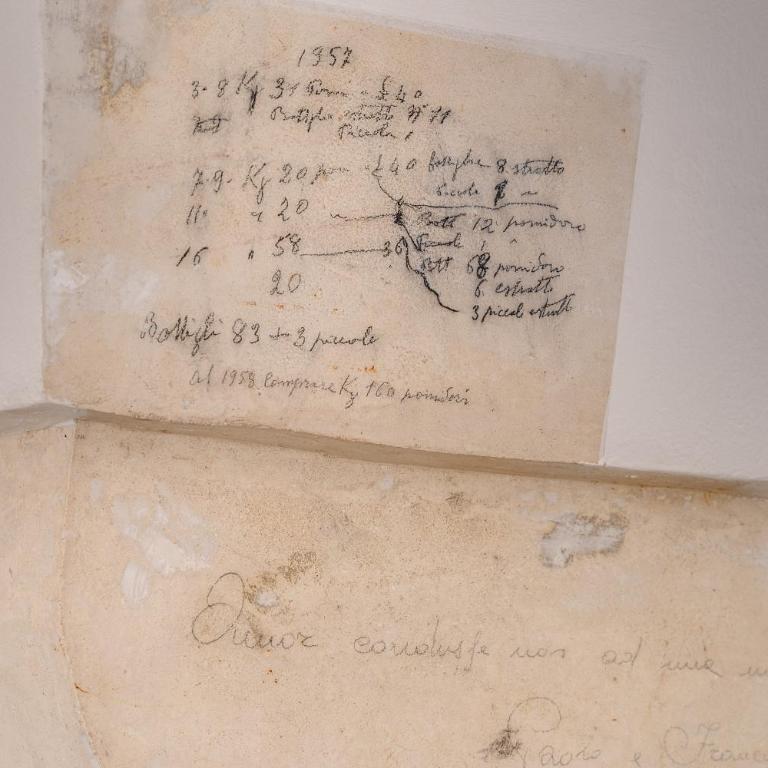 1957
3-8 Kg 31 Pomi - £ 40
Bottiglie estratto N° 11
Piccola 1
7-9- Kg 20 pom £40 bottiglie 8 estratto
11 " " 20 Bott 12 pomidoro
16 " 58 36 Bott 68 pomidoro
20 6 estratto
3 piccol estratto
Bottigli 83 + 3 piccole
al 1958 comprare Kg 160 pomidori
Amor condusse noi ad una
Paolo e Franc